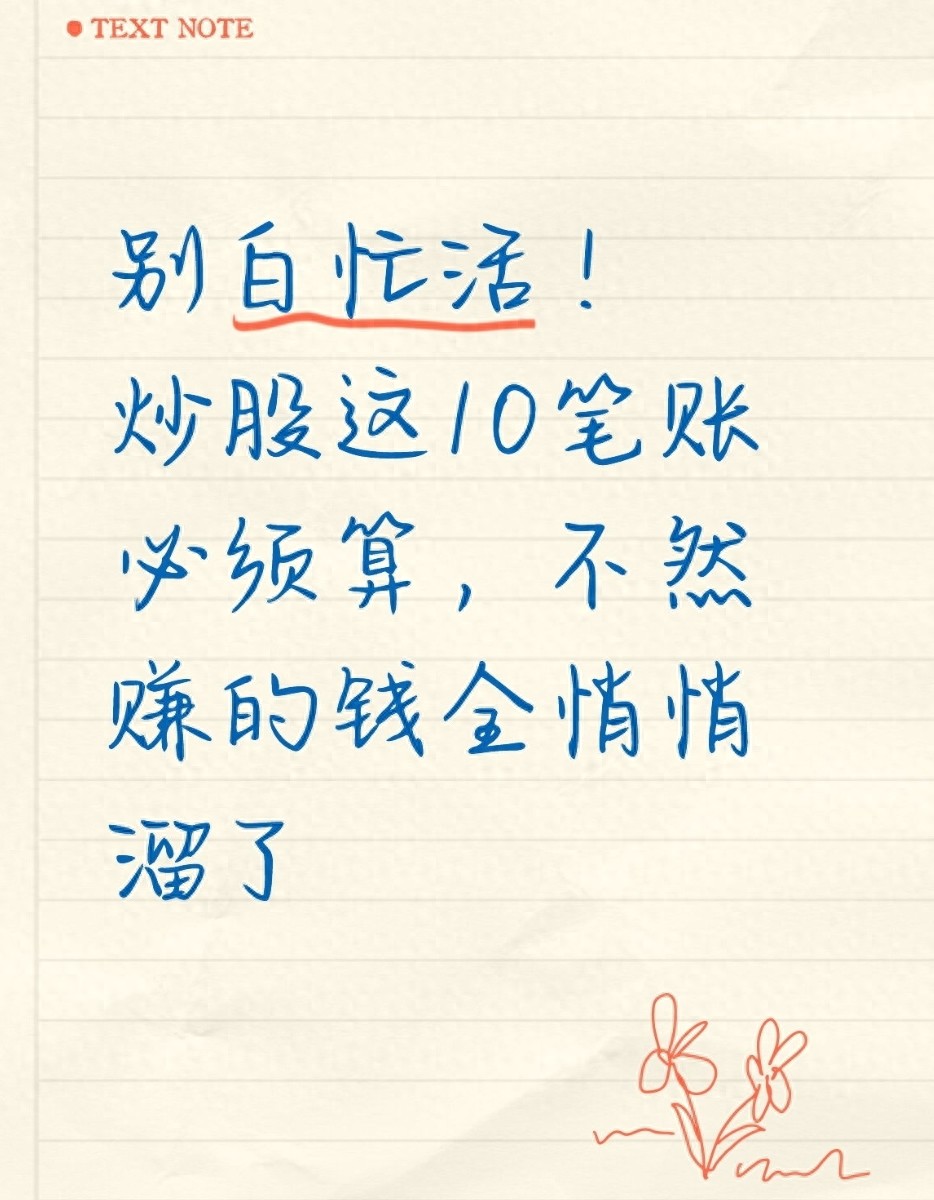 TEXT NOTE
别白忙活！
炒股这10笔账
必须算，不然
赚的钱全悄悄
溜了